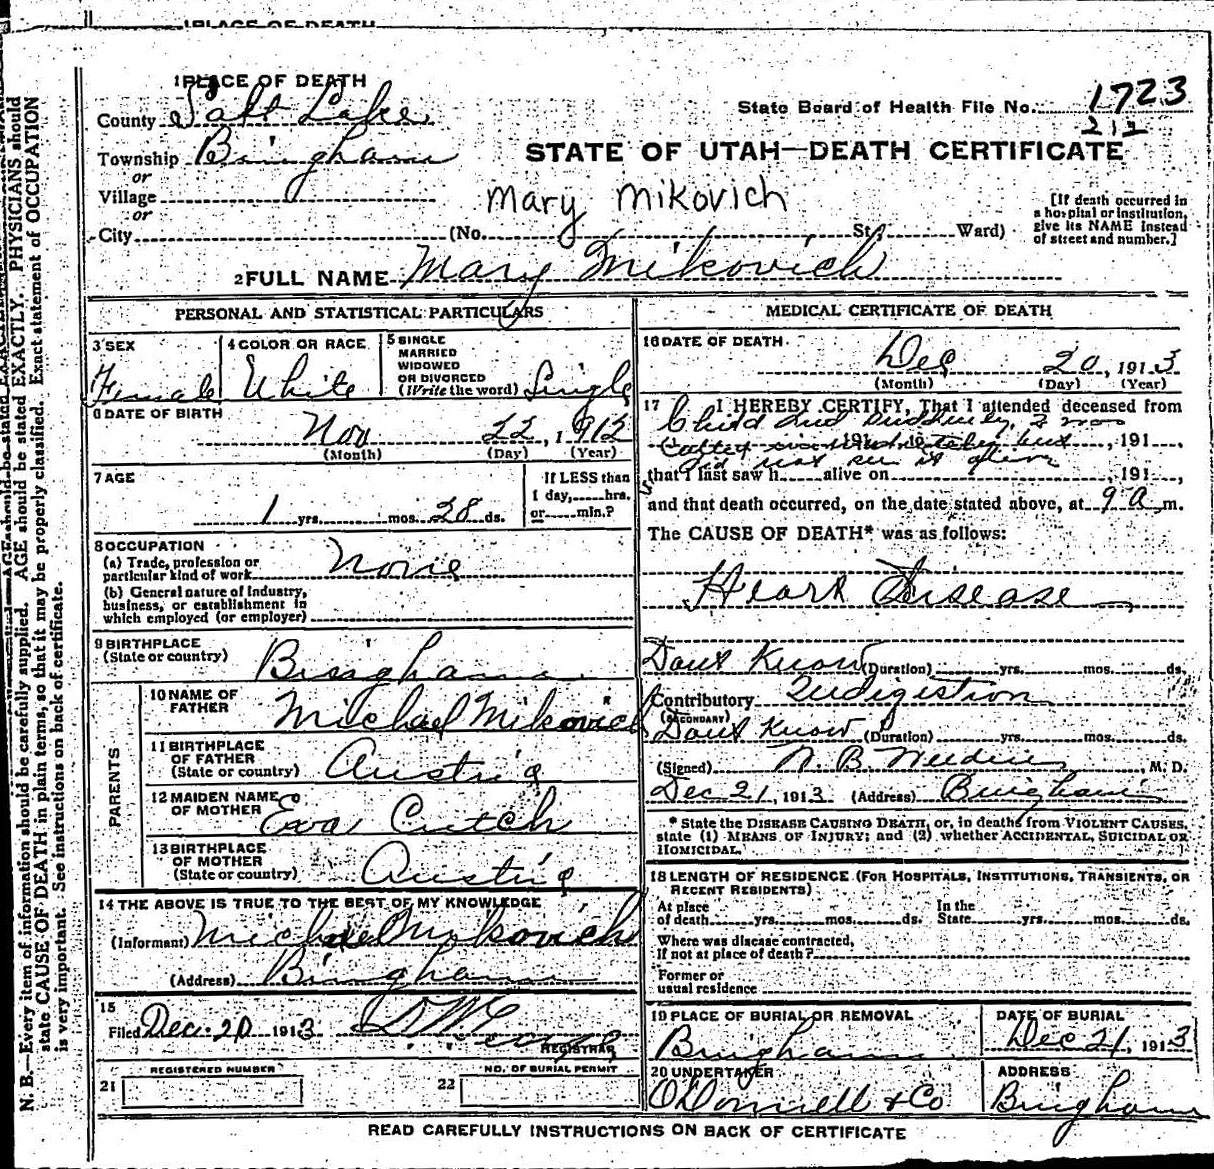 1 PLACE OF DEATH
1 PLACE OF DEATH
County Salt Lake
State Board of Health File No. 1723
212
Township Bingham
or
STATE OF UTAH—DEATH CERTIFICATE
Village
or
Mary Mikovich
City (No. St; Ward)
[If death occurred in
a hospital or institution,
give its NAME instead
of street and number.]
2 FULL NAME Mary Mikovich
PERSONAL AND STATISTICAL PARTICULARS
3 SEX
Female
4 COLOR OR RACE
White
5 SINGLE
MARRIED
WIDOWED
OR DIVORCED
(Write the word) Single
6 DATE OF BIRTH
Nov 22, 1912
(Month) (Day) (Year)
7 AGE
1 yrs. mos. 28 ds.
If LESS than
1 day, hrs.
or min.?
8 OCCUPATION
(a) Trade, profession or
particular kind of work None
(b) General nature of Industry,
business, or establishment in
which employed (or employer)
9 BIRTHPLACE
(State or country) Bingham
PARENTS
10 NAME OF
FATHER Michael Mikovich
11 BIRTHPLACE
OF FATHER
(State or country) Austria
12 MAIDEN NAME
OF MOTHER Eva Cutch
13 BIRTHPLACE
OF MOTHER
(State or country) Austria
14 THE ABOVE IS TRUE TO THE BEST OF MY KNOWLEDGE
(Informant) Michael Mikovich
(Address) Bingham
15
Filed Dec. 20 1913
REGISTRAR
REGISTERED NUMBER
21
NO. OF BURIAL PERMIT
22
MEDICAL CERTIFICATE OF DEATH
16 DATE OF DEATH
Dec 20, 1913
(Month) (Day) (Year)
17 I HEREBY CERTIFY, That I attended deceased from
Child died suddenly, I was
called 191 , to but , 191 ,
did not see it alive
that I last saw h alive on , 191 ,
and that death occurred, on the date stated above, at 9 a m.
The CAUSE OF DEATH* was as follows:
Heart Disease
Dont Know (Duration) yrs. mos. ds.
Contributory Indigestion
(SECONDARY)
Dont Know (Duration) yrs. mos. ds.
(Signed) , M. D.
Dec 21, 1913 (Address) Bingham
* State the DISEASE CAUSING DEATH, or, in deaths from VIOLENT CAUSES,
state (1) MEANS OF INJURY; and (2) whether ACCIDENTAL, SUICIDAL OR
HOMICIDAL.
18 LENGTH OF RESIDENCE (FOR HOSPITALS, INSTITUTIONS, TRANSIENTS, OR
RECENT RESIDENTS)
At place
of death yrs. mos. ds.
In the
State yrs. mos. ds.
Where was disease contracted,
If not at place of death?
Former or
usual residence
19 PLACE OF BURIAL OR REMOVAL
Bingham
DATE OF BURIAL
Dec 21, 1913
20 UNDERTAKER
O'Donnell & Co
ADDRESS
Bingham
READ CAREFULLY INSTRUCTIONS ON BACK OF CERTIFICATE
N. B.—Every item of information should be carefully supplied. AGE should be stated EXACTLY. PHYSICIANS should
state CAUSE OF DEATH in plain terms, so that it may be properly classified. Exact statement of OCCUPATION
is very important. See instructions on back of certificate.